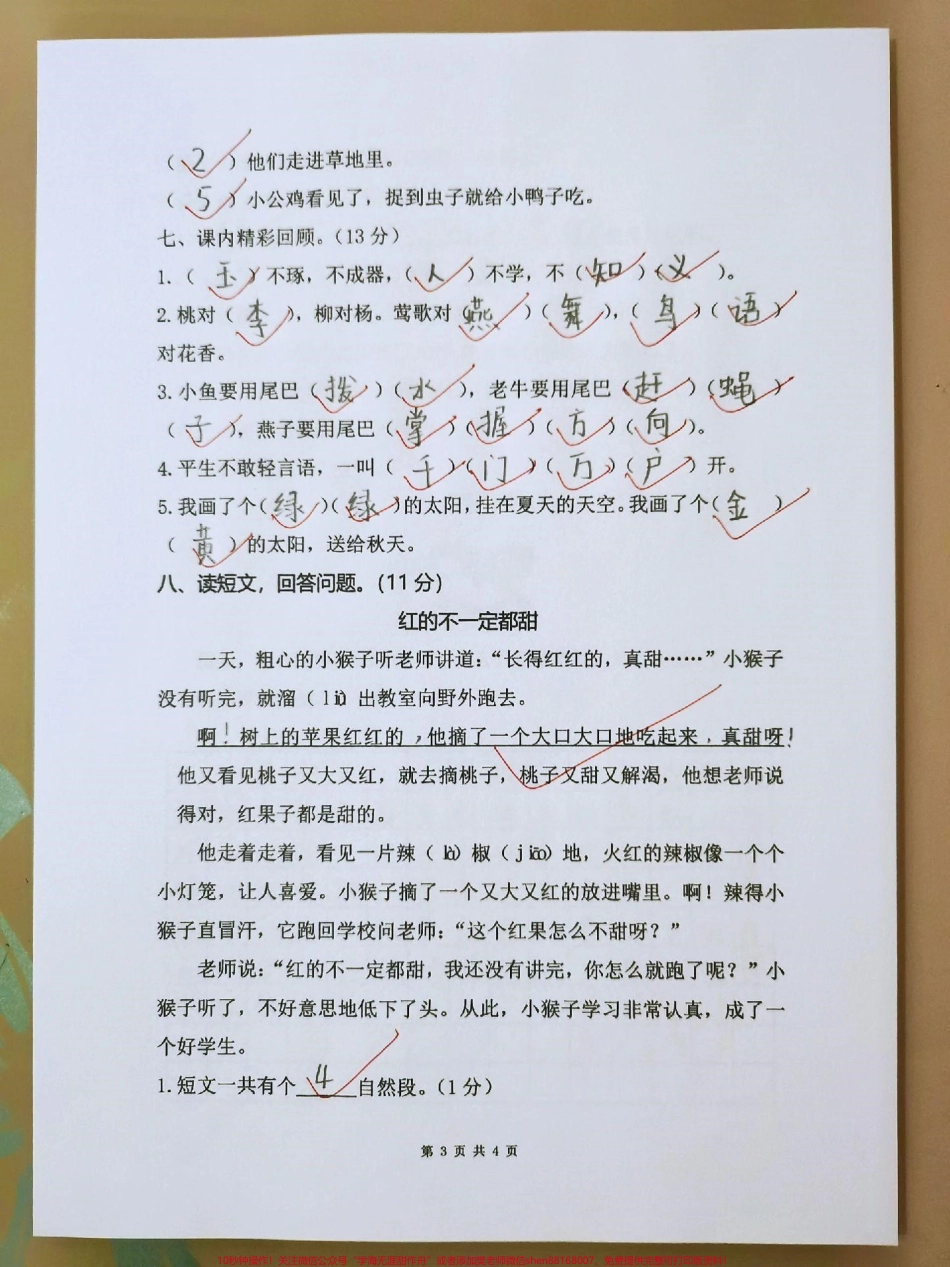 （2）他们走进草地里。
（5）小公鸡看见了，捉到虫子就给小鸭子吃。
七、课内精彩回顾。（13分）
1.（玉）不琢，不成器，（人）不学，不（知）（义）。
2.桃对（李），柳对杨。莺歌对（燕）（舞），（鸟）（语）
对花香。
3.小鱼要用尾巴（拨）（水），老牛要用尾巴（赶）（蝇）
（子），燕子要用尾巴（掌）（握）（方）（向）。
4.平生不敢轻言语，一叫（千）（门）（万）（户）开。
5.我画了个（绿）（绿）的太阳，挂在夏天的天空。我画了个（金）
（黄）的太阳，送给秋天。
八、读短文，回答问题。（11分）
红的不一定都甜
一天，粗心的小猴子听老师讲道：“长得红红的，真甜……”小猴子
没有听完，就溜（liū）出教室向野外跑去。
啊！树上的苹果红红的，他摘了一个大口大口地吃起来，真甜呀！
他又看见桃子又大又红，就去摘桃子，桃子又甜又解渴，他想老师说
得对，红果子都是甜的。
他走着走着，看见一片辣（là）椒（jiāo）地，火红的辣椒像一个个
小灯笼，让人喜爱。小猴子摘了一个又大又红的放进嘴里。啊！辣得小
猴子直冒汗，它跑回学校问老师：“这个红果怎么不甜呀？”
老师说：“红的不一定都甜，我还没有讲完，你怎么就跑了呢？”小
猴子听了，不好意思地低下了头。从此，小猴子学习非常认真，成了一
个好学生。
1.短文一共有个 4 自然段。（1分）
第 3 页 共 4 页